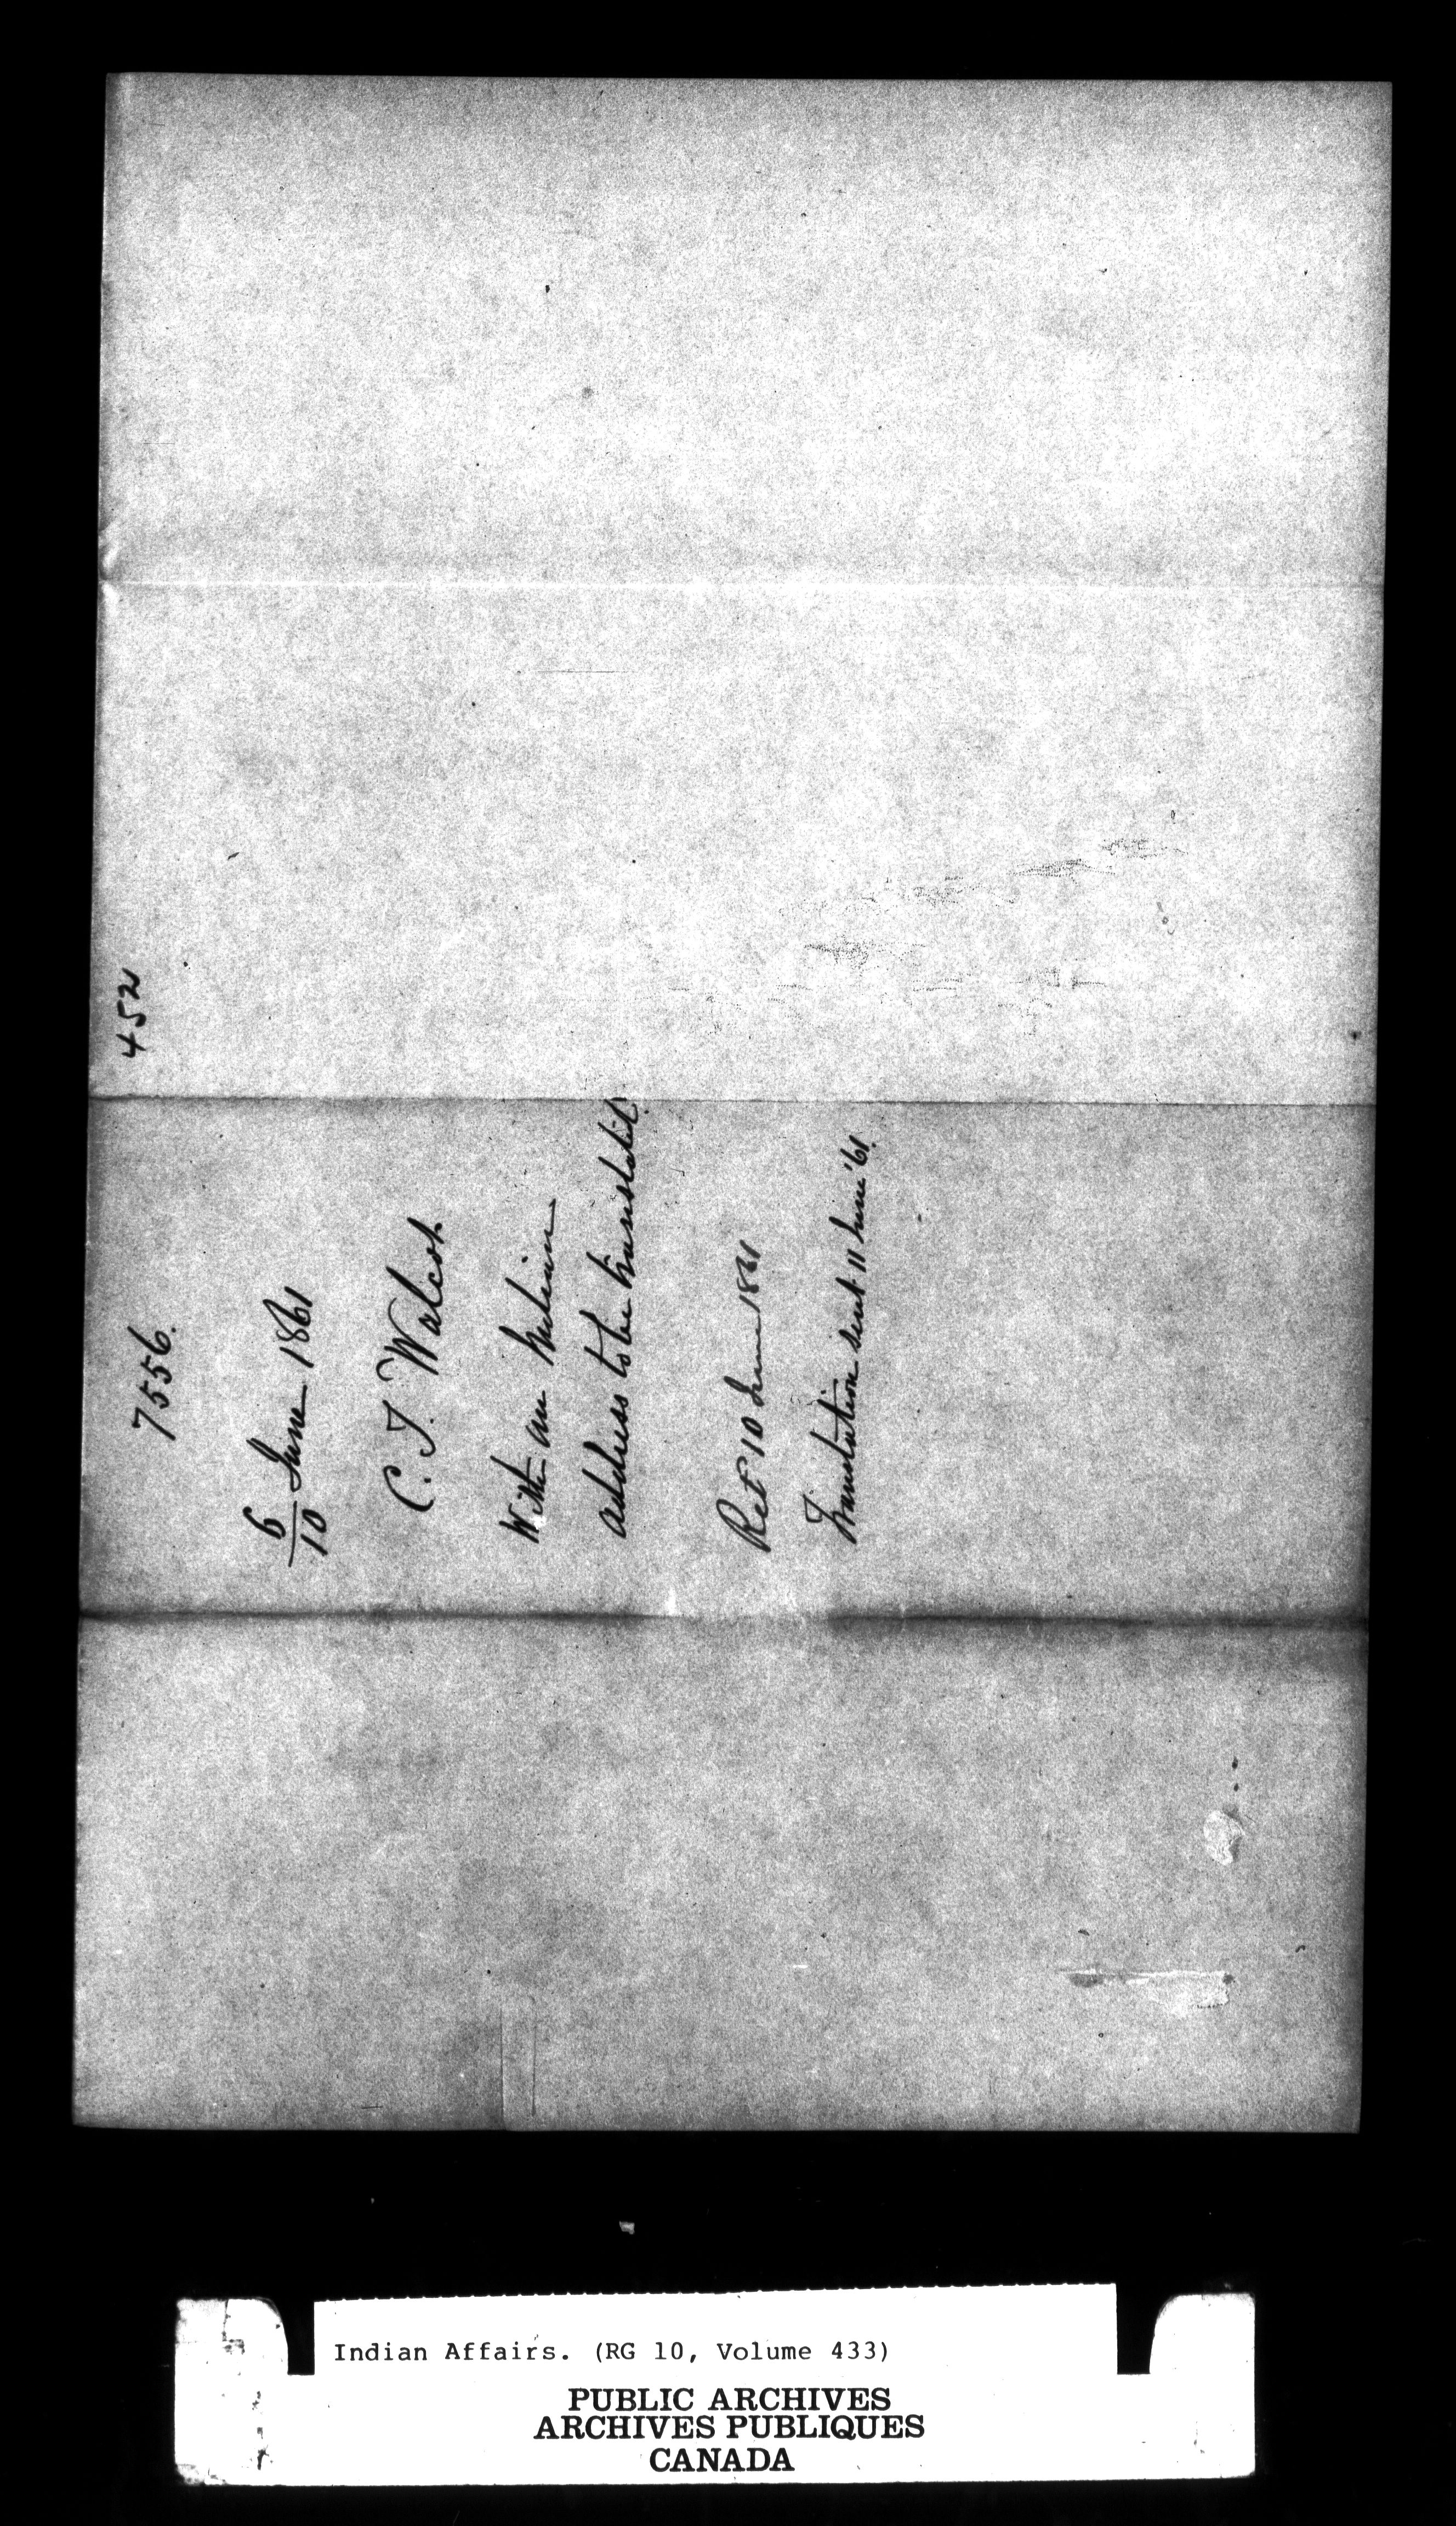 452
7556.
6/10 June 1861
C. T. Walcot
With an Indian
address to be translated.
Recd 10 June 1861
Translation sent 11 June '61.
Indian Affairs. (RG 10, Volume 433)
PUBLIC ARCHIVES
ARCHIVES PUBLIQUES
CANADA